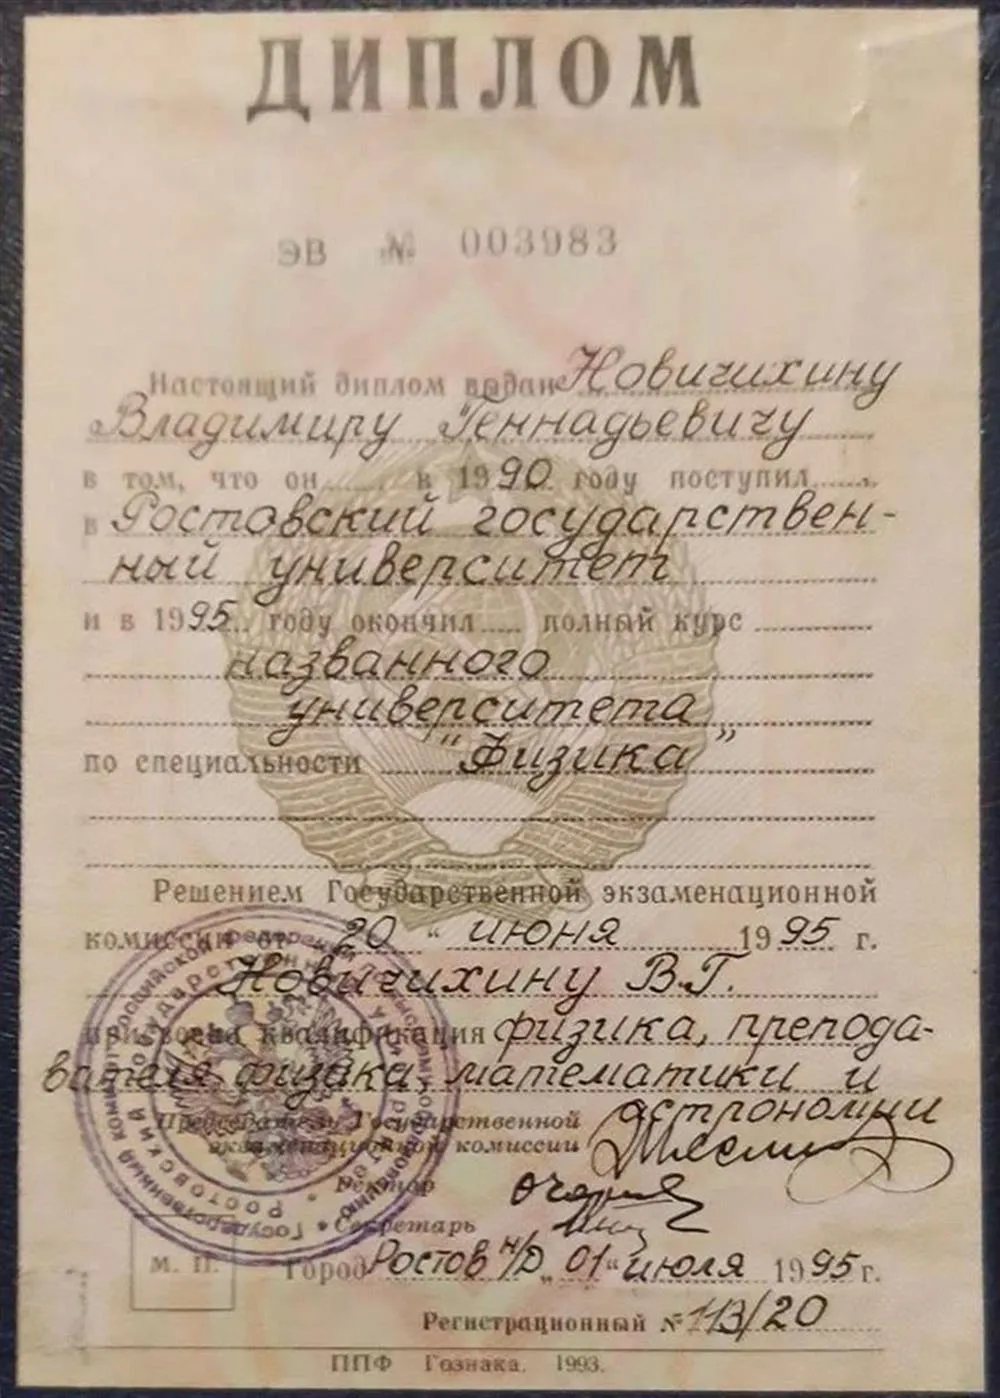 ДИПЛОМ
ЭВ № 003983
Настоящий диплом выдан Новичихину
Владимиру Геннадьевичу
в том, что он в 1990 году поступил
в Ростовский государствен-
ный университет
и в 1995 году окончил полный курс
названного
университета
по специальности "Физика"
Решением Государственной экзаменационной
комиссии от 20 " июня 1995 г.
Новичихину В.Г.
присвоена квалификация физика, препода-
вателя физика, математики и
астрономии
Председатель Государственной
экзаменационной комиссии
Ректор
Секретарь
Город Ростов н/Д " 01 " июля 1995 г.
М. П.
Регистрационный № 113/20
ППФ Гознака. 1993.